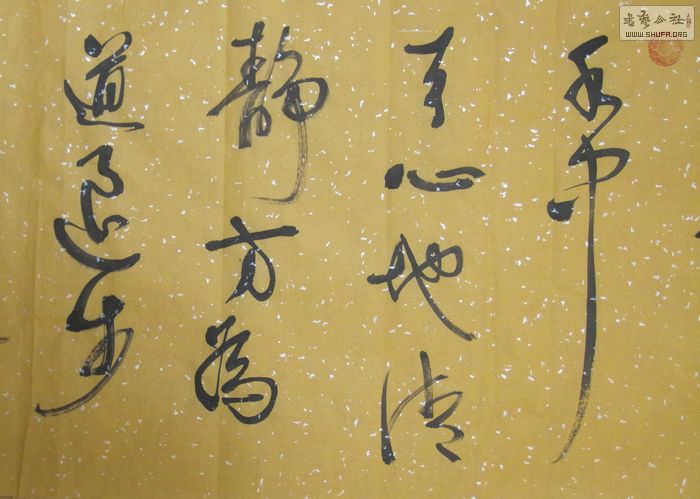 水中
天心地清
靜方為
道退步
書藝公社
WWW.SHUFA.ORG